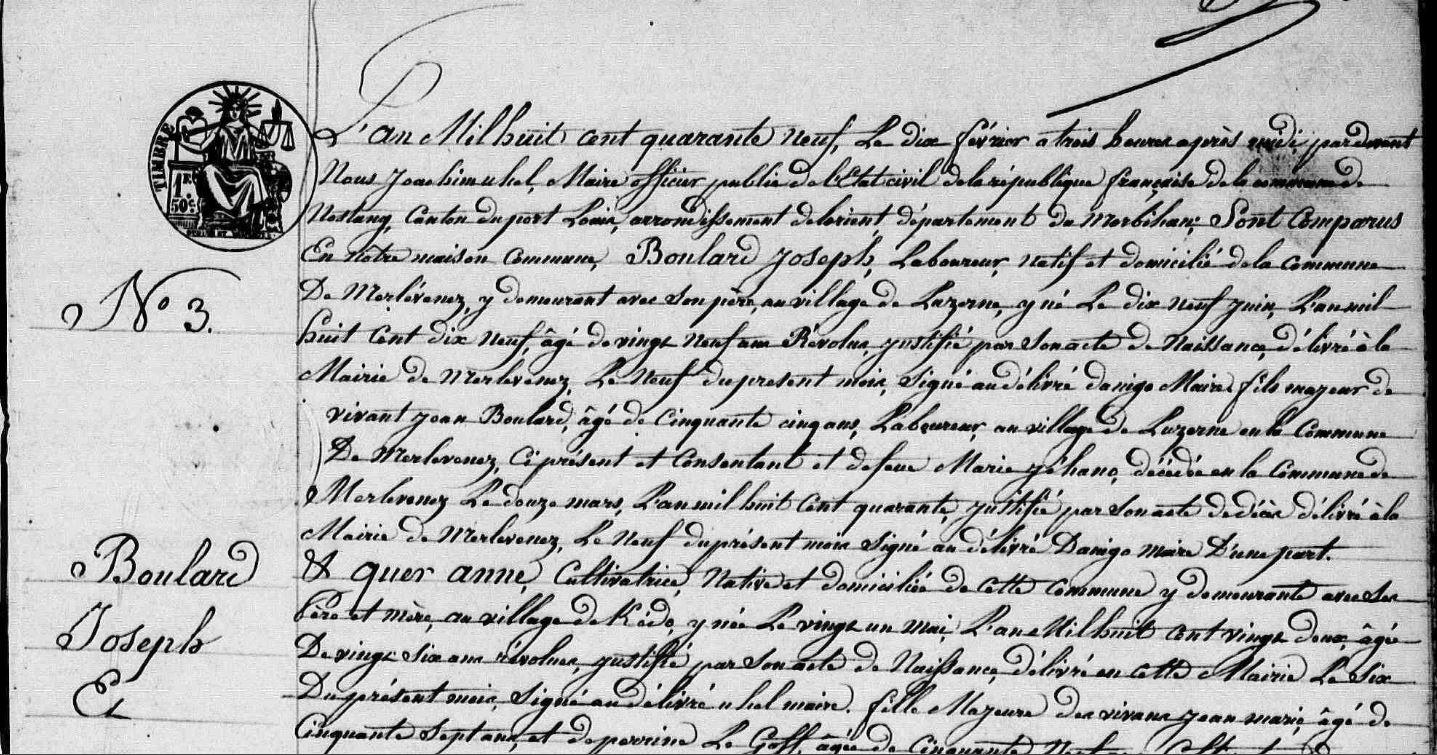 TIMBRE
1F
50c
L'an Mil huit cent quarante Neuf, Le dix février a trois heures après midi pardevant
Nous Joachim uhel, Maire officier public de l'Etat civil de la république française de la commune de
Nostang, Canton du port Louis, arrondissement de lorient, département du Morbihan; Sont Comparus
En nôtre maison Commune, Boulard Joseph, Laboureur, natif et domicilié de la Commune
De Merlévenez, y demeurant avec son père, au village de Luzerne, y né Le dix neuf juin, L'an mil
huit Cent dix neuf, âgé de vingt neuf ans Révolus, justifié par son acte de Naissance, délivré à la
Mairie de Merlevenez, Le Neuf du present mois, Signé au délivré Danigo Maire fils majeur de
vivant jean Boulard, âgé de Cinquante cinq ans, Laboureur, au village de Luzerne en la Commune
De Merlevenez, Ci présent et Consentant et de feue Marie yéhano, décédée en la Commune de
Merlevenez Le douze mars, L'an mil huit Cent quarante, justifié par son acte de décès délivré à la
Mairie de Merlevenez, Le Neuf du présent mois Signé au délivré Danigo maire D'une part.
& quer anne, Cultivatrice, Native et domiciliée de cette Commune y demeurante avec ses
Père et mère, au village de Kdo, y née Le vingt un Mai, L'an Mil huit cent vingt deux, âgée
De vingt six ans révolus, justifié par son acte de Naissance, délivré en cette Mairie Le Six
Du présent mois, Signé au délivré uhel maire. fille Majeure des vivans jean marie, âgé de
Cinquante Sept ans, et de perrine Le Goff, âgée de Cinquante
No 3.
Boulard
Joseph
Et